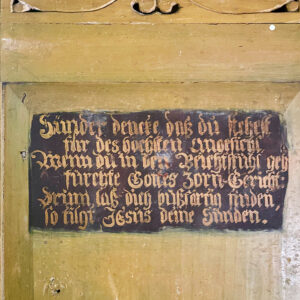 Sünder dencke daß du stehest
für des höchsten Angesicht
Wenn du in den Beichtstuhl gehst
fürchte Gottes Zorn-Gericht:
Drum laß dich bußfertig finden,
so tilgt JEsus deine Sünden.